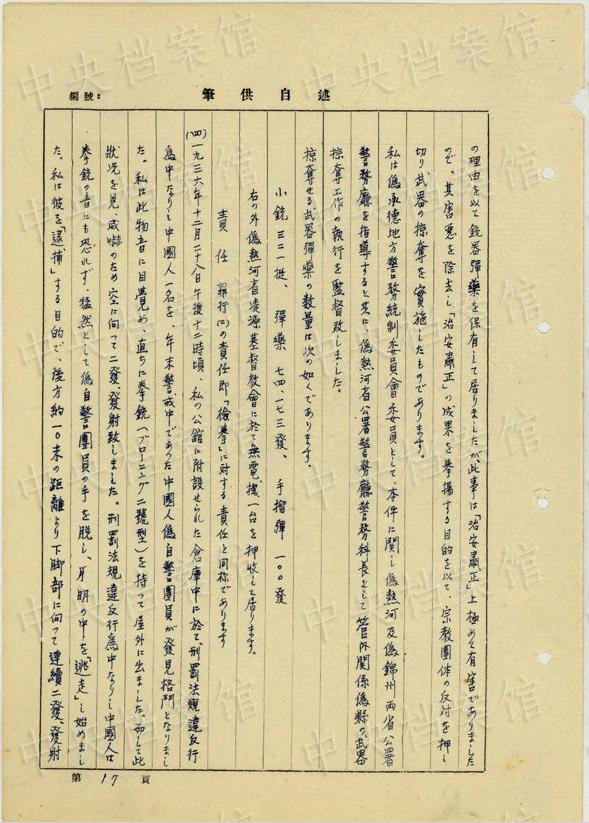 編號：
筆供自述
の理由を以て銃器彈藥を保有して居りましたが、此事は「治安肅正」上極めて有害でありました
ので、其害惡を除去し「治安肅正」の成果を挙揚する目的を以て、宗教團体の反対を押し
切り武器の掠奪を實施したものであります。
私は偽承德地方警務統制委員會委員として、本件に関し偽熱河及偽錦州両省公署
警務廳を指導すると共に、偽熱河省公署警務廳警務科長として管内関係偽縣の、武器
掠奪工作の執行を監督致しました。
掠奪せる武器彈藥の数量は次の如くであります。
小銃 三二一挺、 彈藥 七四、一七三發、 手榴彈 一〇〇發
右の外偽熱河省凌源基督敎會に於て無電機一台を押収して居ります。
責任 罪行(二)の責任即「検挙」に対する責任と同称であります
(四)一九三六年十二月二十八日午後十二時頃、私の公館に附設せられた倉庫中に於て、刑罰法規違反行
為中なりし中國人一名を、年末警戒中であつた中國人偽自警團員が発見格鬥となりまし
た。私は此物音に目覚め、直ちに拳銃(ブローニング二號型)を持つて屋外に出ました。而して此
狀況を見、威嚇のため空に向つて二發、發射致しました。刑罰法規違反行為中なりし中國人は
拳銃の音にも恐れず、猛然として偽自警團員の手を脱し、月明の中を「逃走」し始めまし
た。私は彼を「逮捕」する目的で、後方約一〇米の距離より下脚部に向つて連續二發、發射
第 17 頁
中央档案馆